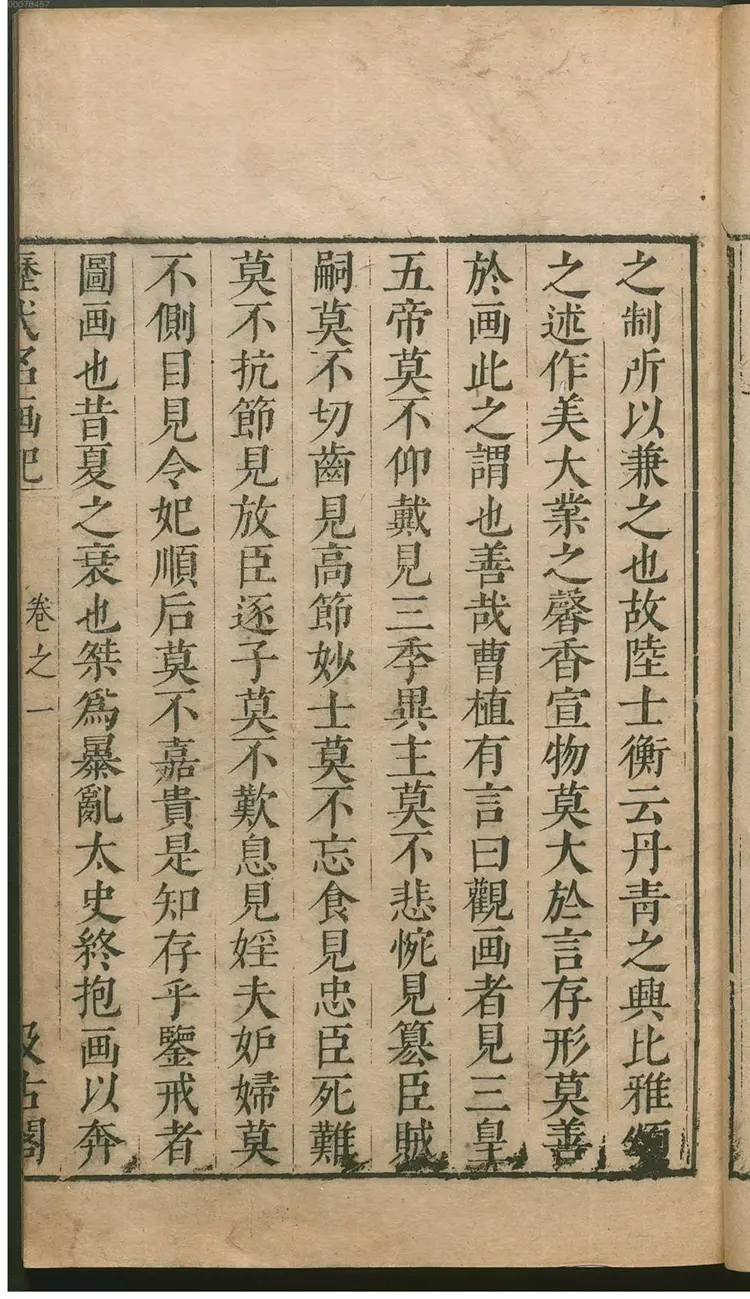 之制所以兼之也故陸士衡云丹青之興比雅頌
之述作美大業之馨香宣物莫大於言存形莫善
於画此之謂也善哉曹植有言曰觀画者見三皇
五帝莫不仰戴見三季異主莫不悲惋見篡臣賊
嗣莫不切齒見高節妙士莫不忘食見忠臣死難
莫不抗節見放臣逐子莫不歎息見婬夫妒婦莫
不側目見令妃順后莫不嘉貴是知存乎鑒戒者
圖画也昔夏之衰也桀爲暴亂太史終抱画以奔
歷代名画記
卷之一
汲古閣
00078457